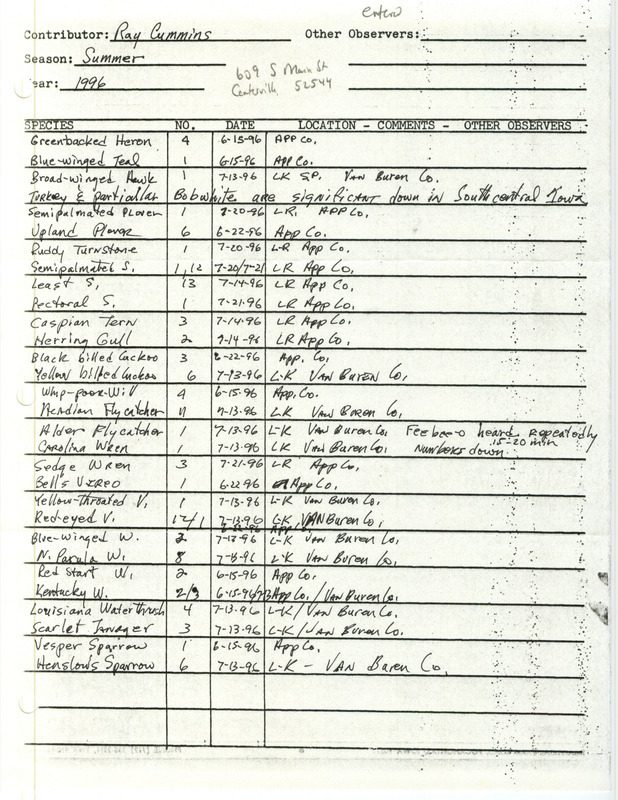 entero
Contributor: Ray Cummins Other Observers:
Season: Summer
ear: 1996
609 S Main St
Centerville 52544
SPECIES NO. DATE LOCATION - COMMENTS - OTHER OBSERVERS
Greenbacked Heron 4 6-15-96 APP Co.
Blue-winged Teal 1 6-15-96 App Co.
Broad-winged Hawk 1 7-13-96 LK S.P. Van Buren Co.
Turkey & particular Bobwhite are significant down in Southcentral Iowa
Semipalmated Plover 1 7-20-96 LR, App Co.
Upland Plover 6 6-22-96 App Co.
Ruddy Turnstone 1 7-20-96 L-R App Co.
Semipalmated S. 1, 12 7-20/7-21 LR App Co.
Least S. 13 7-14-96 LR App Co.
Pectoral S. 1 7-21-96 LR App Co.
Caspian Tern 3 7-14-96 LR App Co.
Herring Gull 2 7-14-96 LR App Co.
Black billed Cuckoo 3 6-22-96 App. Co.
Yellow billed Cuckoo 6 7-13-96 L-K Van Buren Co,
Whip-poor-Wil 4 6-15-96 App. Co.
Acadian Flycatcher 7-13-96 LK Van Buren Co,
Alder Flycatcher 1 7-13-96 L-K Van Buren Co, Feebee-o heard repeatedly
15-20 min
Carolina Wren 1 7-13-96 LK Van Buren Co, Numbers down.
Sedge Wren 3 7-21-96 LR App Co.
Bell's Vireo 1 6-22-96 App Co.
Yellow-Throated V. 1 7-13-96 L-K Van Buren Co.
Red-eyed V. 12/1 7-13-96 L-K Van Buren Co.
6-22-96 App Co.
Blue-winged W. 2 7-13-96 L-K Van Buren Co.
N. Parula W. 8 7-13-96 L-K Van Buren Co.
Red Start W. 2 6-15-96 App Co.
Kentucky W. 2/3 6-15-96/7-13 App Co. / Van Buren Co.
Louisiana Waterthrush 4 7-13-96 L-K/Van Buren Co.
Scarlet Tanager 3 7-13-96 L-K/Van Buren Co,
Vesper Sparrow 1 6-15-96 App Co.
Henslow's Sparrow 6 7-13-96 L-K - Van Buren Co,